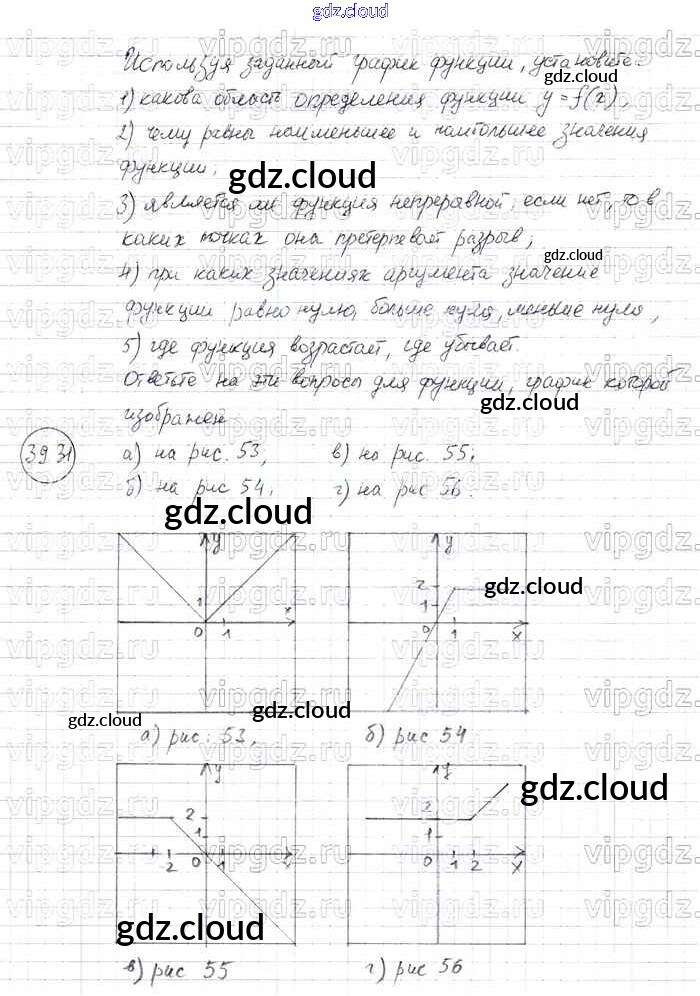 gdz.cloud
Используя заданный график функции, установите:
gdz.cloud
1) какова область определения функции y=f(x),
2) чему равны наименьшее и наибольшее значения
функции;
gdz.cloud
3) является ли функция непрерывной; если нет, то в
каких точках она претерпевает разрыв;
gdz.cloud
4) при каких значениях аргумента значение
функции равно нулю, больше нуля, меньше нуля,
5) где функция возрастает, где убывает.
Ответьте на эти вопросы для функции, график которой
gdz.cloud
изображен
39 31 а) на рис. 53, в) на рис. 55;
б) на рис 54, г) на рис 56.
gdz.cloud
y y
gdz.cloud
2
1 x 1
0 1 0 1 x
gdz.cloud gdz.cloud
а) рис. 53, б) рис 54
y y
gdz.cloud
2 2
1 1
2 0 1 x 0 1 2 x
gdz.cloud gdz.cloud
в) рис 55 г) рис 56
vipgdz.ru